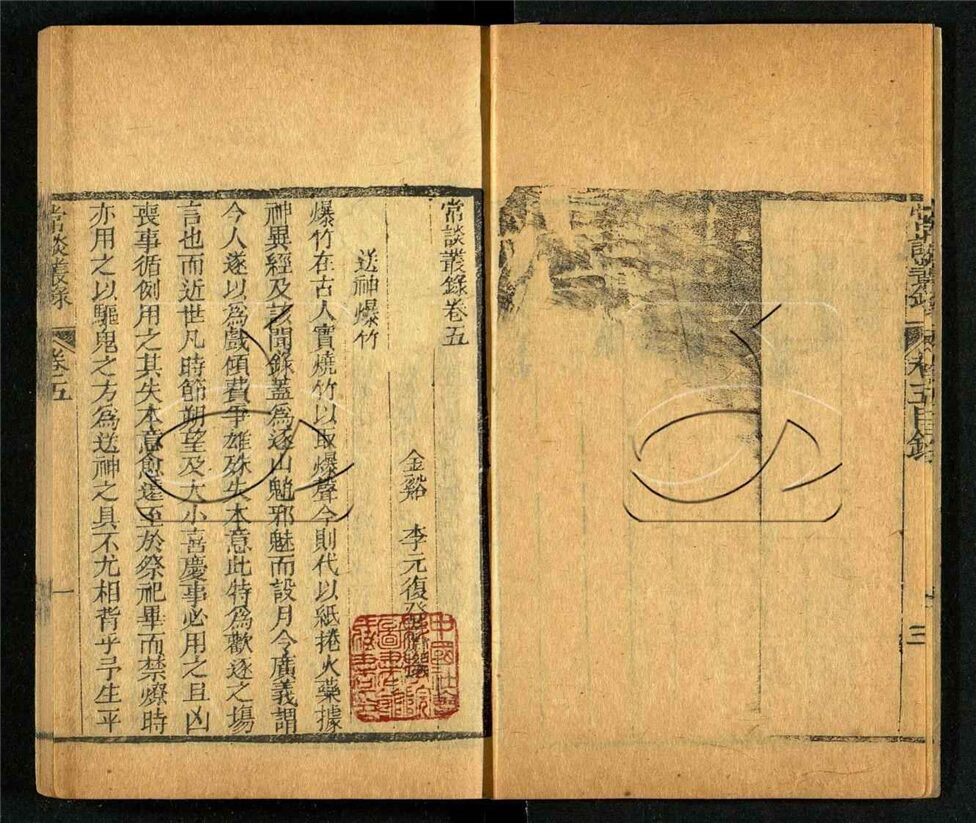 常談叢錄
卷五目錄
三
常談叢錄卷五
金谿 李元復
送神爆竹
爆竹在古人實燒竹以取爆聲今則代以紙捲火藥據
神異經及該聞錄蓋為逐山魈邪魅而設月令廣義謂
今人遂以為戲傾費爭雄殊失本意此特為歡逐之場
言也而近世凡時節朔望及大小喜慶事必用之且凶
喪事循例用之其失本意愈遠至於祭祀畢而禁燎時
亦用之以驅鬼之方為送神之具不尤相背乎予生平
常談叢錄
卷五
一